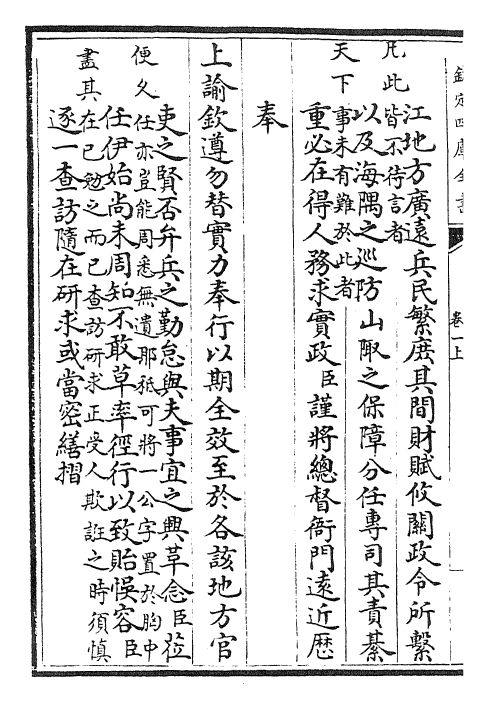 欽定四庫全書
卷一上
江地方廣遠兵民繁庶其間財賦攸關政令所繫
凡此皆不待言者
以及海隅之巡防山陬之保障分任專司其責綦
天下事未有難於此者
重必在得人務求實政臣謹將總督衙門遠近歴
奉
上諭欽遵勿替實力奉行以期全效至於各該地方官
吏之賢否弁兵之勤怠與夫事宜之興革念臣蒞
便久任亦豈能周悉無遺耶秪可將一公字置於胸中
任伊始尚未周知不敢草率徑行以致貽悞容臣
盡其在已勉之而已查訪研求正受人欺誑之時須慎
逐一查訪隨在研求或當密繕摺